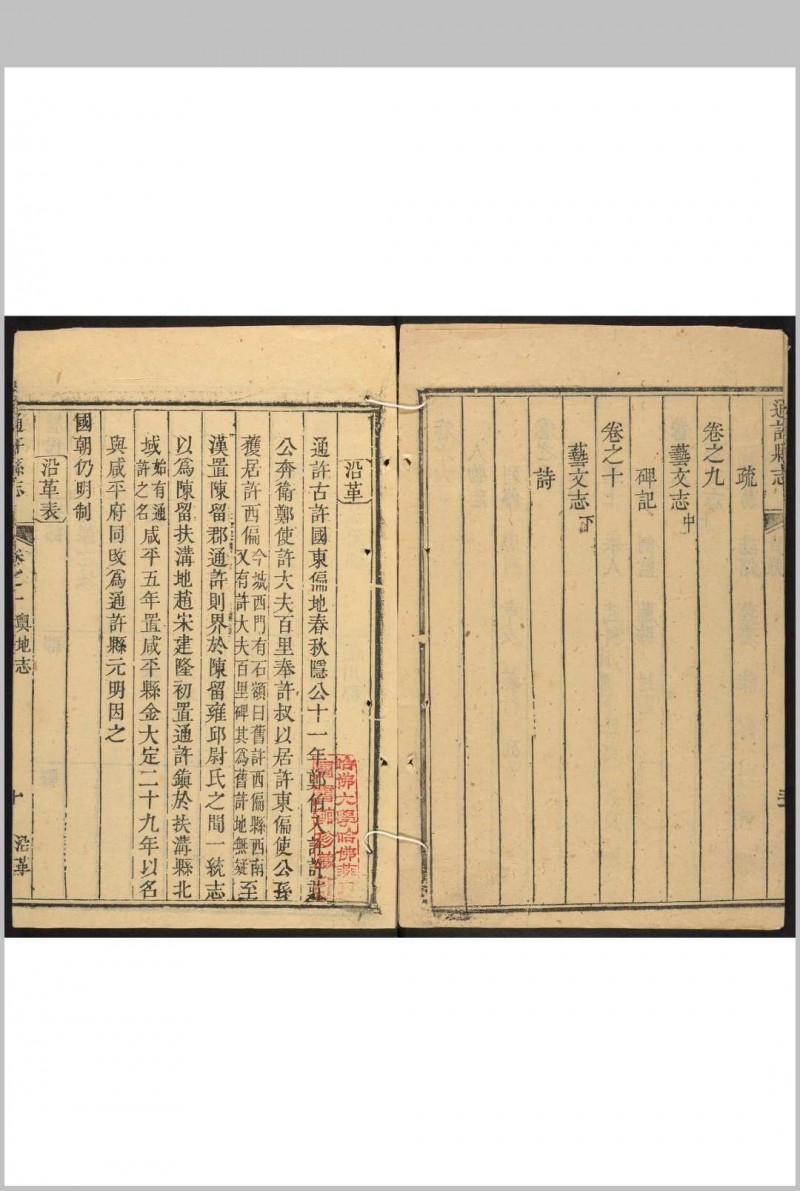 通許縣志
疏
卷之九
藝文志中
碑記
卷之十
藝文志下
詩
沿革
通許古許國東偏地春秋隱公十一年鄭伯入許許莊
公奔衛鄭使許大夫百里奉許叔以居許東偏使公孫
獲居許西偏今城西門有石額曰舊許西偏縣西南又有許大夫百里碑其爲舊許地無疑至
漢置陳留郡通許則界於陳留雍邱尉氏之間一統志
以爲陳留扶溝地趙宋建隆初置通許鎮於扶溝縣北
域始有通許之名咸平五年置咸平縣金大定二十九年以名
與咸平府同改爲通許縣元明因之
國朝仍明制
沿革表
通許縣志 卷之一 輿地志 十 沿革
哈佛大學哈佛燕京
圖書館珍藏